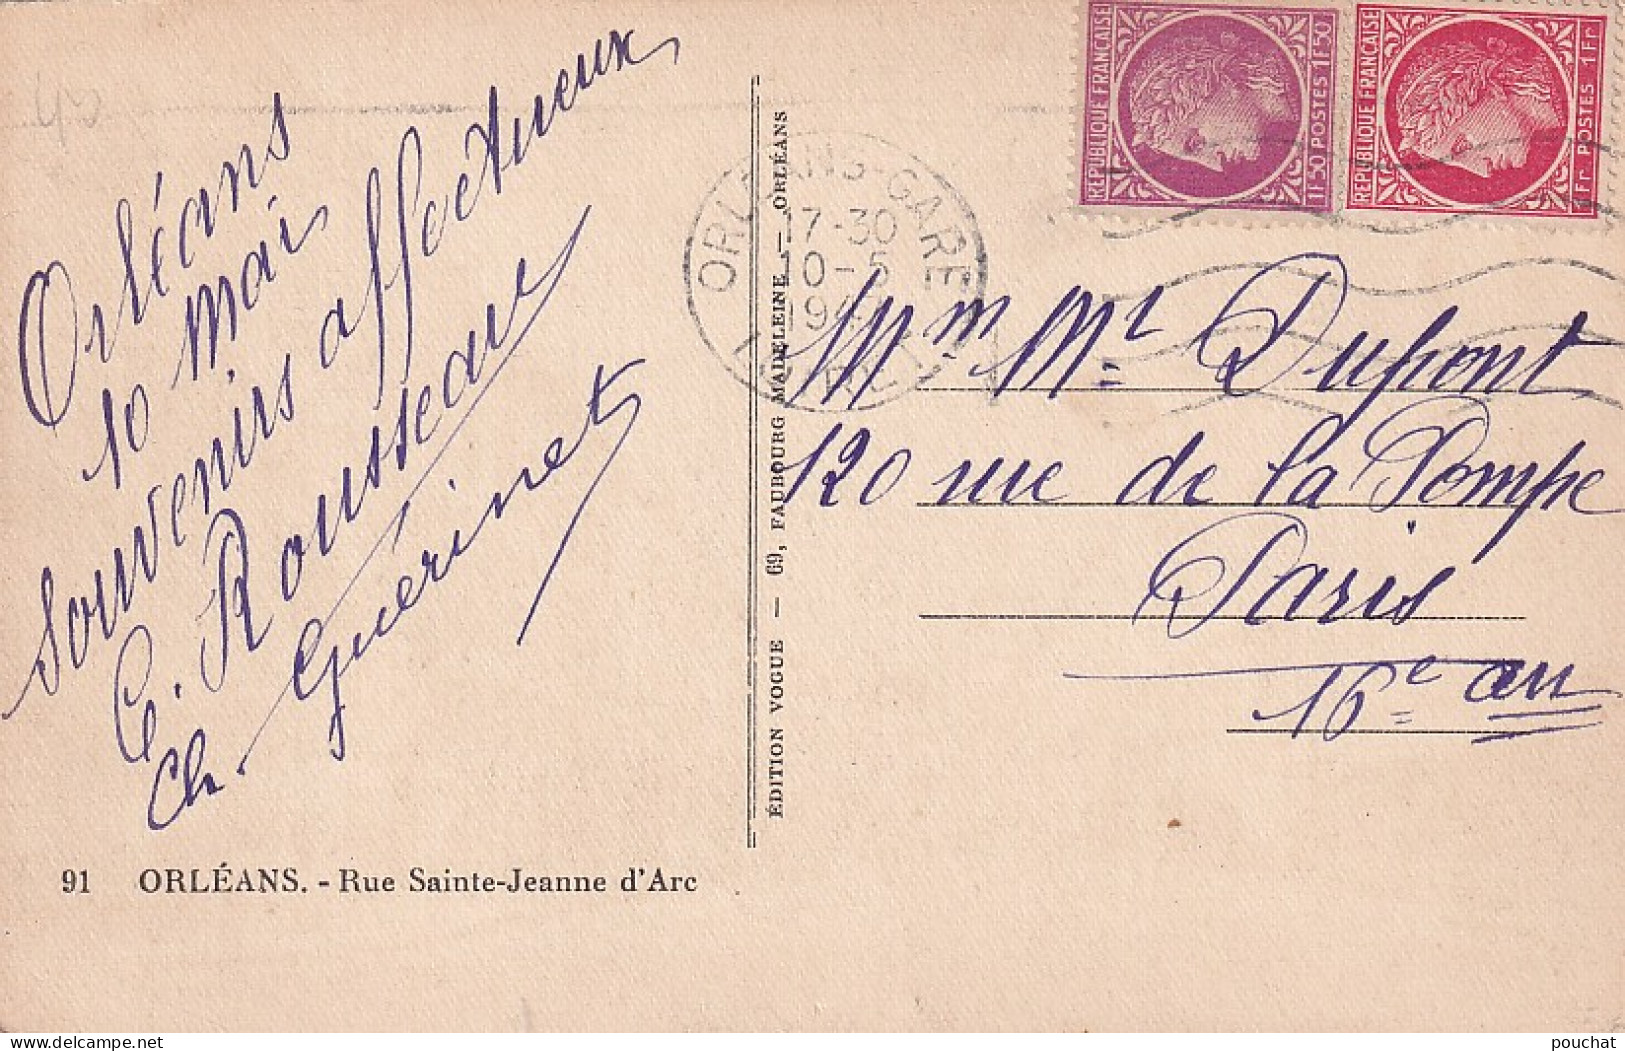 Orléans
10 Mai
Souvenirs affectueux
C. Rousseau
Ch. Guérinet
91 ORLÉANS. - Rue Sainte-Jeanne d'Arc
ÉDITION VOGUE — 69, FAUBOURG MADELEINE — ORLÉANS
ORLEANS-GARE
17-30
10-5
194
RÉPUBLIQUE FRANÇAISE
1F50 POSTES 1F50
RÉPUBLIQUE FRANÇAISE
1Fr POSTES 1Fr
Mm Mr Dupont
120 rue de la Pompe
Paris
16e arr
pouchat